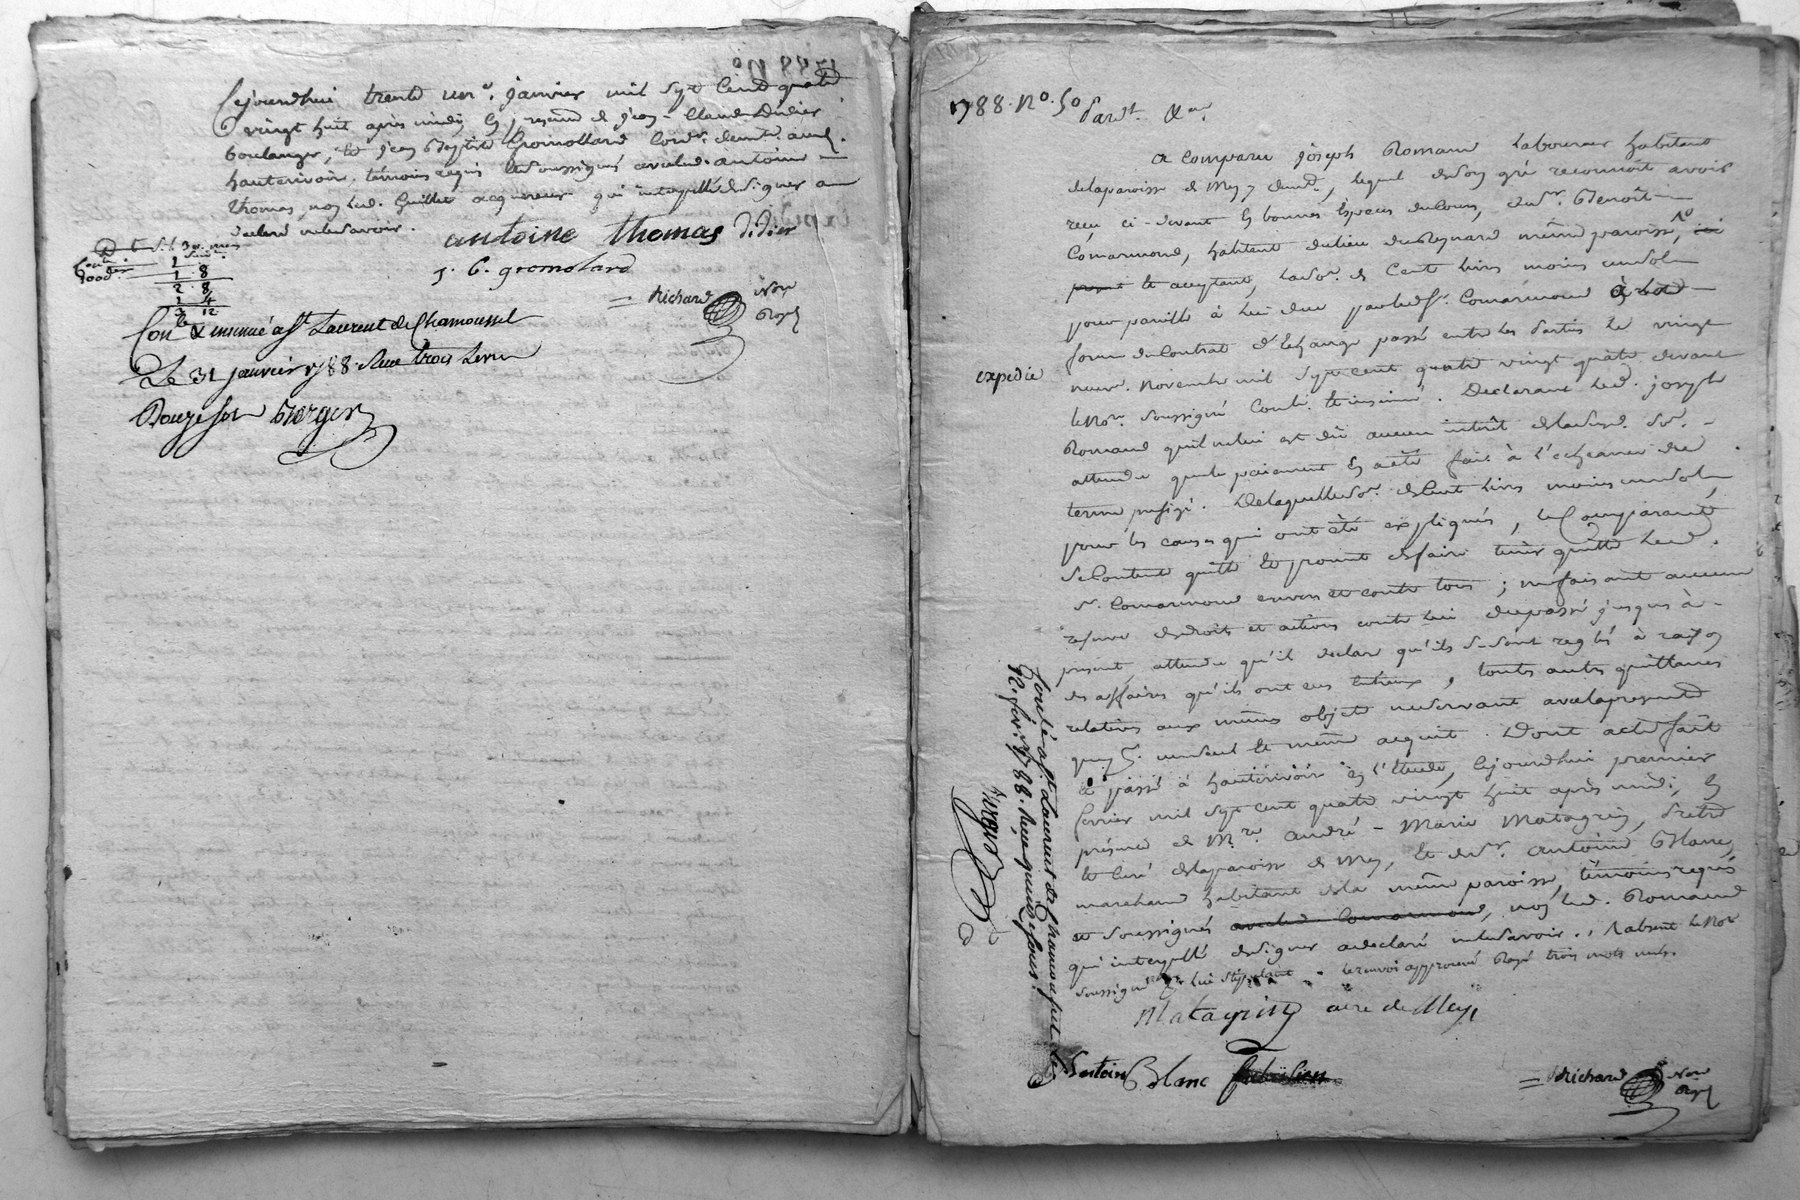 Cejourdhui trente un.e janvier mil sept Cent quatre
vingt huit après midy En presence de jean-Claude Didier
boulanger, et jean Baptiste Gromollard Cord.r demt. aud.
hauterivoire. témoins requis et soussignés avec led. antoine
thomas, non led. Guillet acquereur qui interpellé de signer a
declaré ne le savoir.
antoine thomas didier
j. b. gromolard
Richard Not.re Royal
1
1. 8
2. 8
1 4
3 12
Con. & insinué à St. Laurent de Chamousset
Le 31 janvier 1788. Reçu trois livres
Douze sols Berger
1788. No. 50
Pardt. &a.
a comparu joseph Romand Laboureur habitant
de la paroisse de Meys demt., lequel de son gré reconnoît avoir
reçu ci-devant En bonnes Espèces du Cours, du sr. Benoît
Comarmond, habitant du lieu du Reynard même paroisse,
et acceptant, la so.e de Cent livres moins un sol
pour pareille à lui due par led. sr. Comarmond
forme du Contrat d'Echange passé entre les Parties le vingt
neuf. Novembre mil sept cent quatre vingt quatre devant
expédié
le No.re soussigné Contr. et insinué. Declarant led. joseph
Romand qu'il ne lui est dû aucun intérêt de lad. so.e
attendu que le paiement En a été fait à l'echeance du
terme prefigé. De laquelle so.e de Cent livres moins un sol
pour les causes qui ont été expliqués, le Comparant
se Contente quitte et promet de faire tenir quitte led.
sr. Comarmond envers et contre tous; ne faisant aucune
reserve de droits et actions contre lui du passé jusques à
present, attendu qu'il declare qu'ils se sont reglés à raison
des affaires qu'ils ont eus Entreux, toutes autres quittances
relatives aux mêmes objets ne servant avec la presente
que d'un seul et même acquit. Dont acte fait
et passé à hauterivoire En l'Etude, Cejourdhui premier
fevrier mil sept cent quatre vingt huit après midi, En
présence de M.re andré-Marie Matagrin, Prêtre
et Curé de la paroisse de Meys, et de sr. antoine Blanc,
marchand habitant de la même paroisse, témoins requis
et soussignés avec led. Comarmond, non led. Romand
qui interpellé de signer a declaré ne le savoir. / absent le No.re
soussigné pour lui stipulant. Le renvoi approuvé Rayé trois mots nuls.
Matagrin curé de Meys
antoin Blanc
Richard Not.re Royal
Conlé à St. Laurent de Chamousset le
12. fevr. 1788. Reçu quinze sous.
Berger